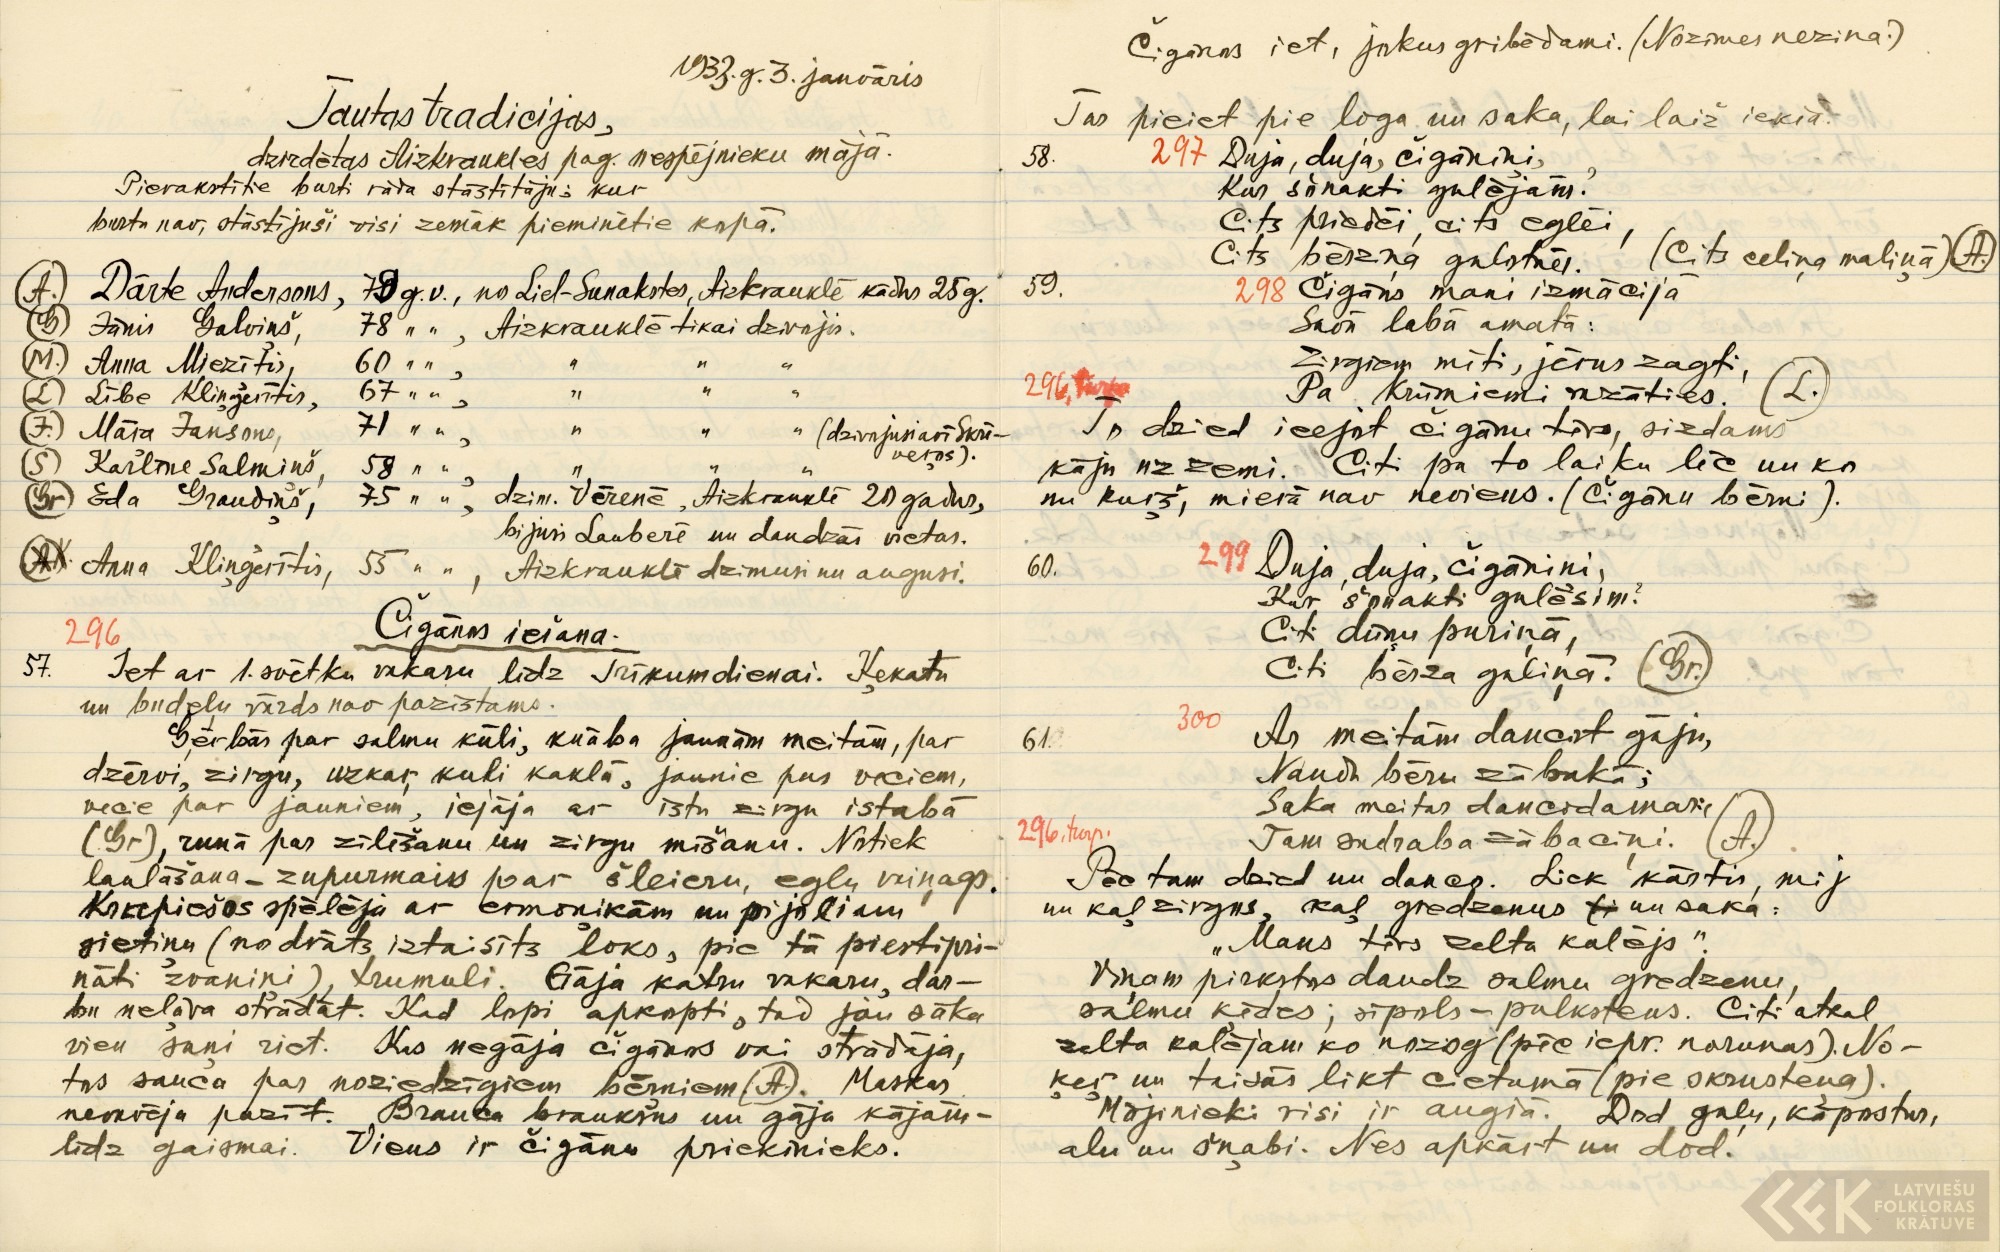 1933. g. 3. janvāris
Tautas tradicijas,
dzirdētas Aizkraukles pag. nespējnieku mājā.
Pierakstītie burti rāda stāstītāju; kur
burtu nav, stāstījuši visi zemāk pieminētie kopā.
(A.) Dārte Andersons, 79 g. v., no Liel-Sunakstes, Aizkrauklē kādus 25 g.
(G) Jānis Galviņš, 78 " ", Aizkrauklē tikai dzīvojis.
(M.) Anna Miezītis, 60 " ", " " "
(L) Lībe Kliņģerītis, 67 " ", " " "
(J.) Māra Jansons, 71 " ", " " " (dzīvojusi arī Skrī-
veros).
(S) Karlīne Salmiņš, 58 " ", " " "
(Gr) Eda Graudiņš, 75 " ", dzim. Vērenē, Aizkrauklē 20 gadus,
bijusi Lauberē un daudzās vietās.
(AK) Anna Kliņģerītis, 55 " ", Aizkrauklē dzimusi un augusi.
296 Čigānos iešana.
57. Iet ar 1. svētku vakaru līdz Trīkumdienai. Ķekatu
un budēļu vārds nav pazīstams.
Ģērbās par salmu kūli, knāba jaunām meitām, par
dzērvi, zirgu, uzkar kuli kaklā, jaunie par veciem,
vecie par jauniem, iejāja ar īstu zirgu istabā
(Gr), runā par zīlēšanu un zirgu mīšanu. Notiek
laulāšana - zupurmaiss par šleieru, egļu vaiņags.
spēlēja ar ermonikām un pijolium
sietiņu (no drāts iztaisīts loks, pie tā piestipri-
nāti zvaniņi), trumuli. Gāja katru vakaru, dar-
bu neļāva strādāt. Kad lopi apkopti, tad jau sāka
vien suņi riet. Kas negāja čigānos vai strādāja,
tos sauca par noziedzīgiem bērniem (A). Maskas
nevarēja pazīt. Brauca braukšus un gāja kājām -
līdz gaismai. Viens ir čigānu priekšnieks.
Čigānos iet, jokus gribēdami. (Nozīmes nezina.)
Tas pieiet pie loga un saka, lai laiž iekšā.
58. 297 Duja, duja, čigāniņi,
Kur šonakti gulējām?
Cits priedēi, cits eglēi,
Cits bērziņa galotnēs. (Cits celiņa maliņā) (A.)
59. 298 Čigāns mani izmācija
Savā labā amatā:
Zirgiem mīti, jērus zagti,
296,
Pa krūmiemi vazāties. (L.)
To dzied ieejot čigānu tēvs, sizdams
kāju uz zemi. Citi pa to laiku lēc un ko
nu kurš, mierā nav neviens. (Čigānu bērni).
60. 299 Duja, duja, čigāniņi,
Kur šonakti gulēsim?
Citi dūņu puriņā,
Citi bērza galiņā. (Gr.)
61. 300 Ar meitām dancot gāju,
Naudu bēru zābakā;
Saka meitas dancodamas:
296, turp.
Tam sudraba zābaciņi. (A.)
Pēc tam dzied un danco. Liek kārtis, mij
un kaļ zirgus, kaļ gredzenus un saka:
„Mans tēvs zelta kalējs".
Viņam pirkstos daudz salmu gredzenu,
salmu ķēdes; sīpols - pulkstens. Citi atkal
zelta kalējam ko nozog (pēc iepr. norunas). No-
ķeŗ un taisās likt cietumā (pie skursteņa).
Mājinieki visi ir augšā. Dod gaļu, kāpostus,
alu un šņabi. Nes apkārt un dod.
LATVIEŠU
FOLKLORAS
KRĀTUVE